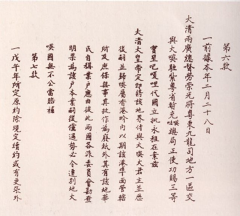 第六款
一前據本年二月二十八日
大清兩廣總督勞崇光將粵東九龍司地方一區交
與大𠸄駐紮粵省暫充𠸄㖠總局正使功賜三等
寶星吧嗄哩代國立批永租在案茲
大清大皇帝定即將該地界付與大𠸄大君主並歷
後嗣並歸𠸄屬香港界內以期該港埠面管轄
所及庶保無事其批作為廢紙外其有該地華
民自稱業戶應由彼此兩國各派委員會勘查
明果為該戶本業嗣後倘遇勢必令遷別地大
𠸄國無不公當賠補
第七款
一戊午年所定原約除現定續約或有更張外